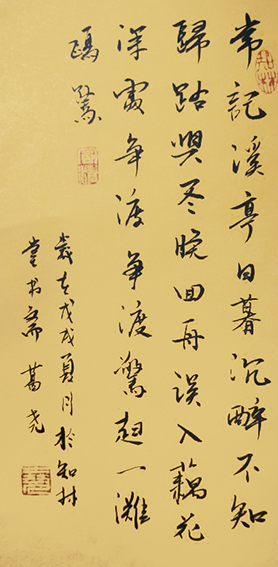 常記溪亭日暮沉醉不知
歸路興尽晚回舟误入藕花
深處争渡争渡驚起一滩
鷗鷺
歲在戊戌夏月於知林
堂书斋 葛尧